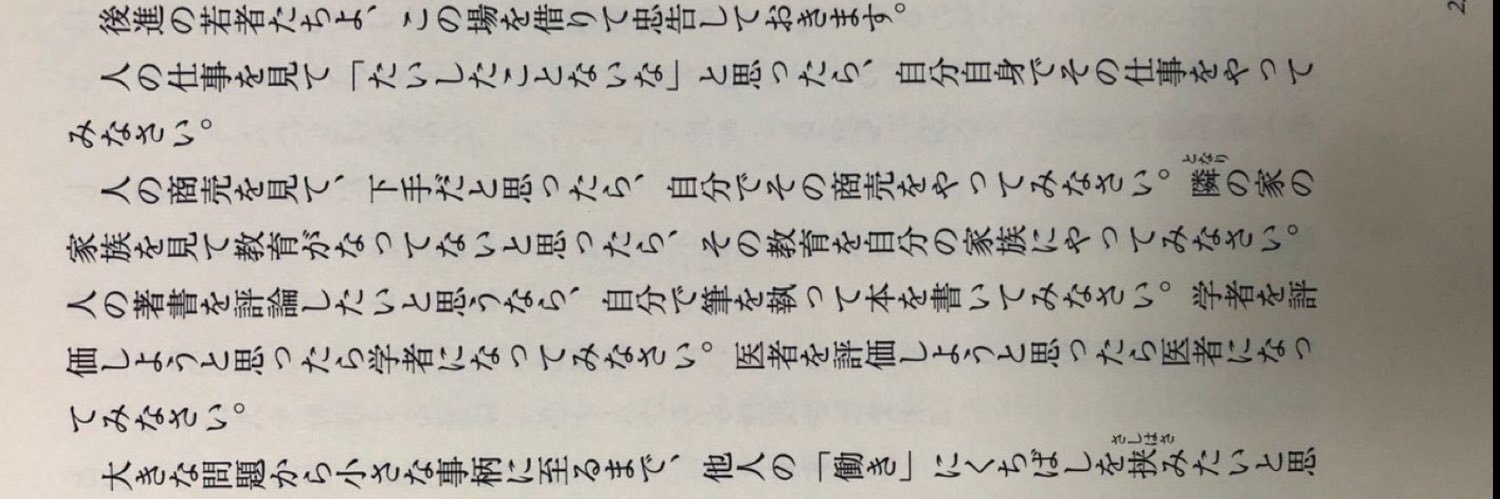 後進の若者たちよ、この場を借りて忠告しておきます。
人の仕事を見て「たいしたことないな」と思ったら、自分自身でその仕事をやって
みなさい。
人の商売を見て、下手だと思ったら、自分でその商売をやってみなさい。隣の家の
となり
家族を見て教育がなってないと思ったら、その教育を自分の家族にやってみなさい。
人の著書を評論したいと思うなら、自分で筆を執って本を書いてみなさい。学者を評
価しようと思ったら学者になってみなさい。医者を評価しようと思ったら医者になっ
てみなさい。
大きな問題から小さな事柄に至るまで、他人の「働き」にくちばしを挟みたいと思
さしはさ